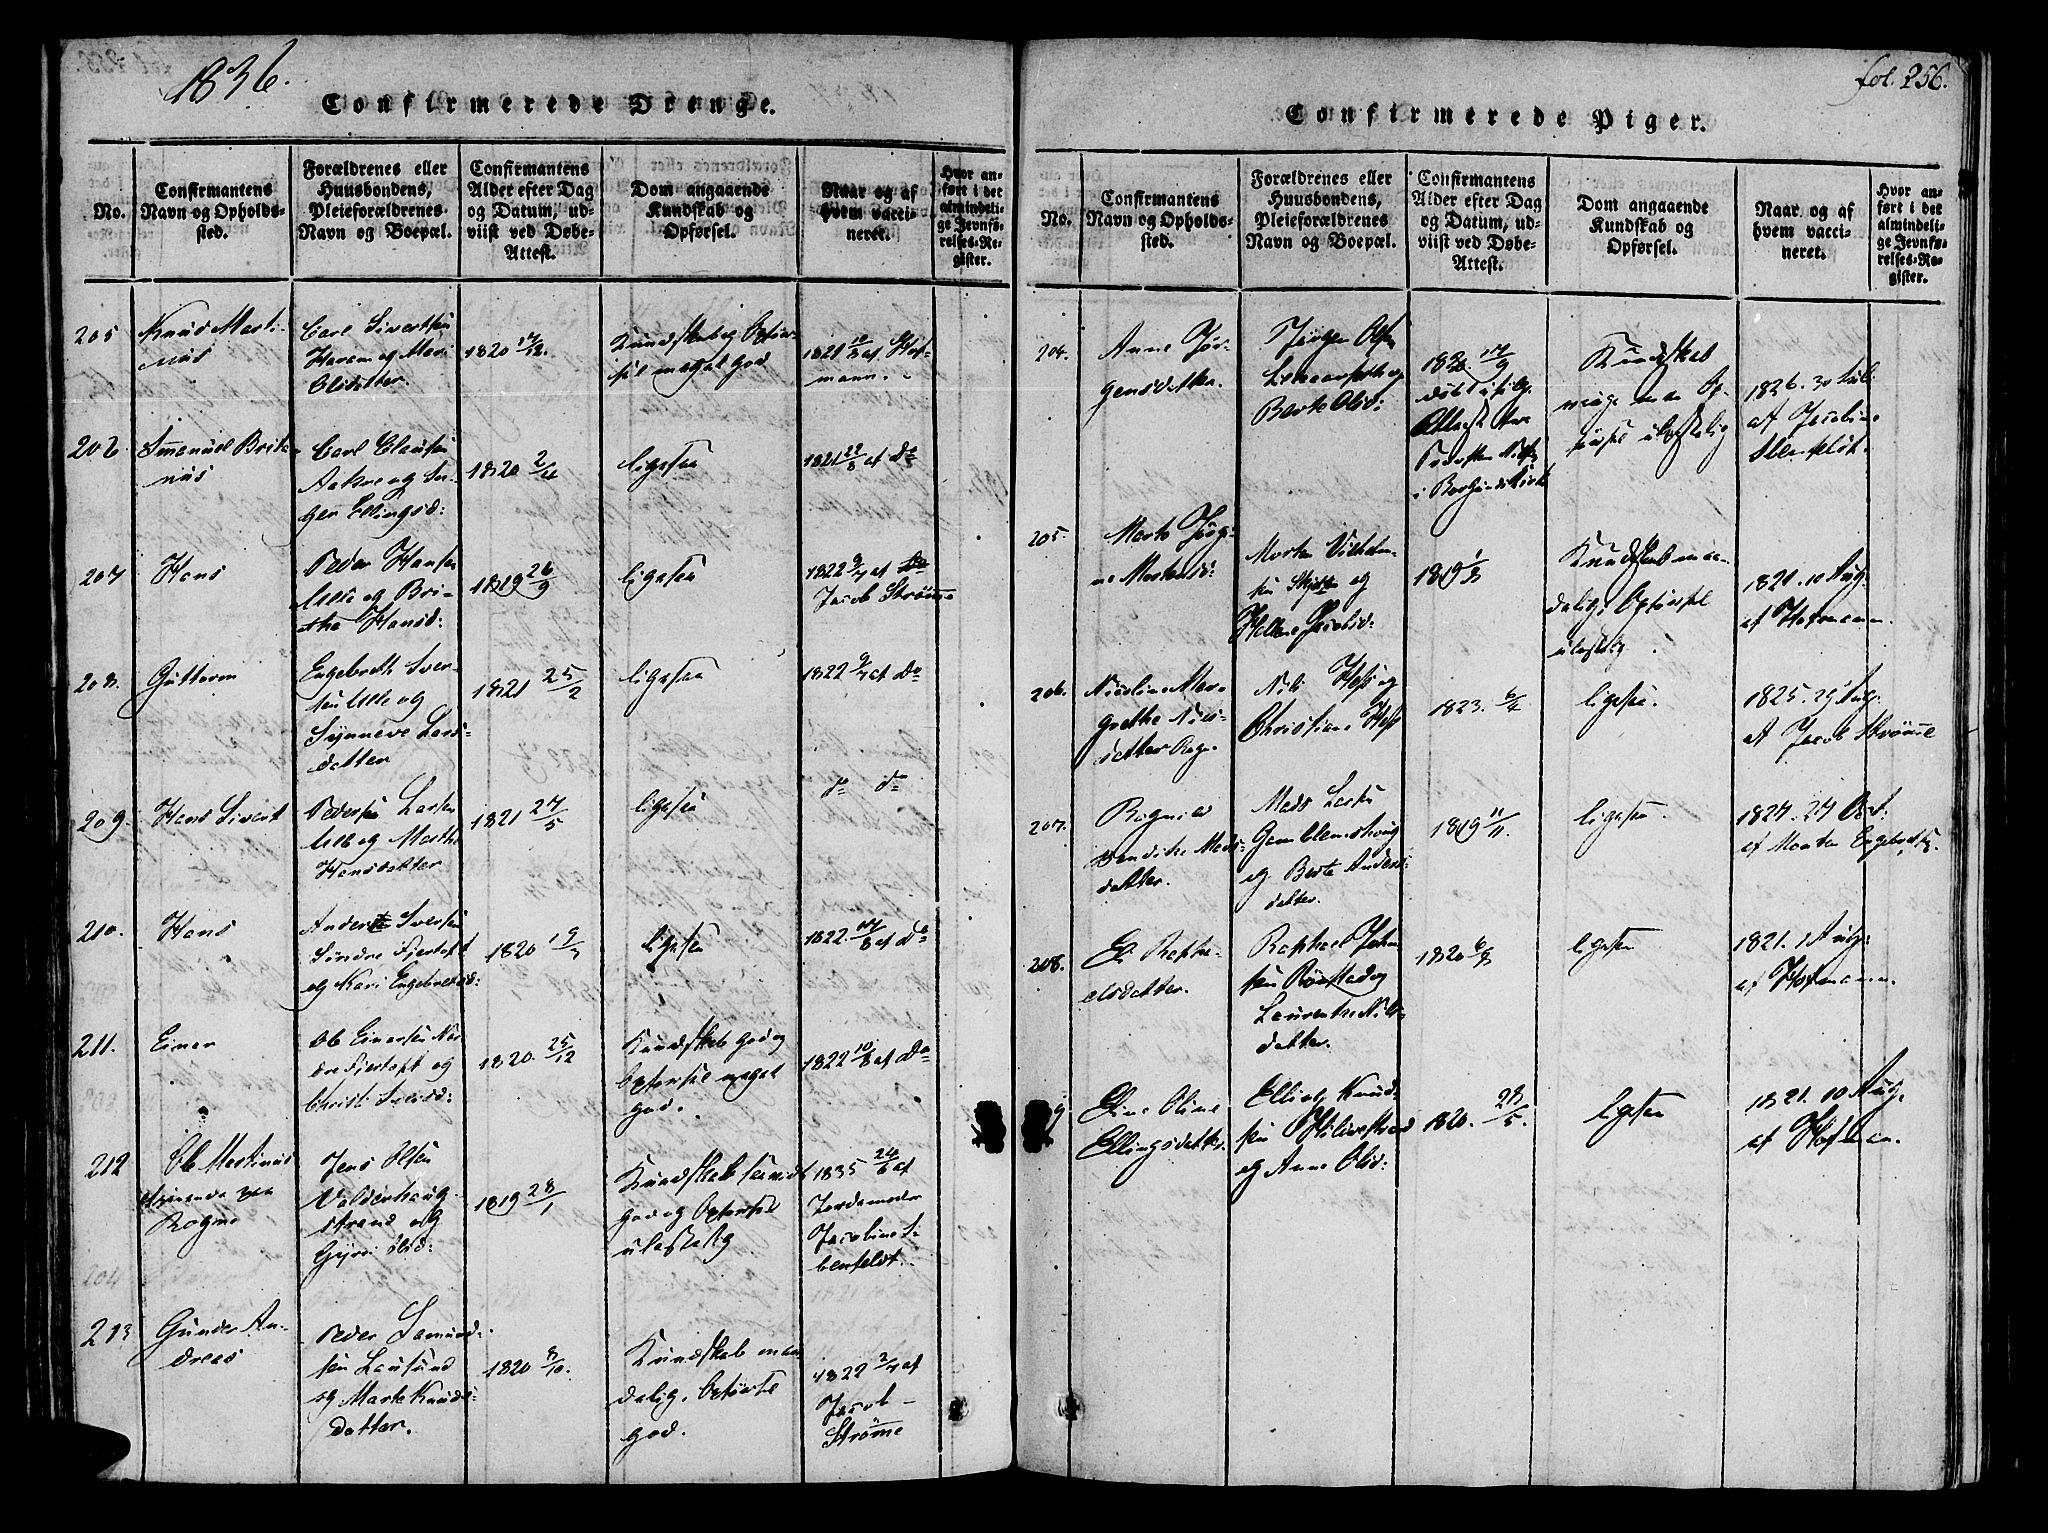 1836.
Confirmerede Drenge.
No.
Confirmantens
Navn og Opholds-
sted.
Forældrenes eller
Huusbondens,
Pleieforældrenes
Navn og Boepæl.
Confirmantens
Alder efter Dag
og Datum, ud-
viist ved Døbe-
Attest.
Dom angaaende
Kundskab og
Opførsel.
Naar og af
hvem vacci-
neret.
Hvor an-
ført i det
almindeli-
ge Jevnfø-
relses-Re-
gister.
205
Knud Marti-
nus
Carl Sivertsen
Haram og Mari
Olsdatter
1820 17/12.
Kundskab og Opfør-
sel meget god
1821 10/8 af Hof-
mann.
206
Emanuel Brita-
nius
Carl Clausen
Aakre og In-
ger Ellingsd:
1820 2/4
ligesaa
1821 22/8 af Do
207
Hans
Peder Hansen
Ulle og Bri-
tha Hansd:
1819 26/9
ligesaa
1822 9/7 af
Jacob Strømme
208.
Guttorm
Engebreth Iver-
sen Ulle og
Synneve Lars-
datter
1821 25/2
ligesaa
1822 9/7 af Do
209
Hans Sivert
Peder Larsen
Ulle og Marthe
Hansdatter
1821 27/5
ligesaa
do do
210.
Hans
Anders Iversen
Søndre Fiertoft
og Kari Engebretsd:
1820 19/3
ligesaa
1822. 17/8 af Do
211.
Einar
Ole Einersen Nor-
dre Fiertoft og
Christi Iversd:
1820. 25/12
Kundskab god og
Opførsel meget
god.
1822 10/8 af Do
212
Ole Martinus
tienende paa
Rogne
Jens Olsen
Valderhaug-
strand og
Gyri Olsd:
1819 28/1
Kundskab temmel
god og Opførsel
ulastelig
1835 24/6 af
Jordemoder
Jacobine S.
benfeldt.
213
Gunder An-
dreas
Peder Samund-
sen Lausund
og Marte Knuds-
datter.
1820 8/10.
Kundskab maa-
delig, Opførsel
god.
1822 2/7 af
Jacob
Strømme
fol. 256.
Confirmerede Piger.
No.
Confirmantens
Navn og Opholds-
sted.
Forældrenes eller
Huusbondens,
Pleieforældrenes
Navn og Boepæl.
Confirmantens
Alder efter Dag
og Datum, ud-
viist ved Døbe-
Attest.
Dom angaaende
Kundskab og
Opførsel.
Naar og af
hvem vacci-
neret.
Hvor an-
ført i det
almindeli-
ge Jevnfø-
relses-Re-
gister.
204.
Anne Jør-
gensdatter
Jørgen Olsen
og
Berte Olsd:
1820. 17/9
døbt ifølge
Attest fra
i Borgunds Kirke
Kundskab
maa Op-
førsel ulastelig
1826. 30 Juli
af Jacobine
205.
Marte Jørgi-
ne Mortensd:
Morten Vilhelm-
sen og
Hellene Jacobsd:
1819 1/8
Kundskab maa-
delig, Opførsel
ulastelig.
1821. 10 Aug.
af Hofmann.
206.
Nicoline Mar-
grethe Niels-
datter Rogn.
Nils Hess og
Christiane Hess
1823. 6/4
ligesaa
1825. 29 Aug.
af Jacob Strømme
207.
Ragnild
Bendikte Mads-
datter.
Mads Larsen
Gamblemshoug
og Berte Anders-
datter.
1819 11/11.
ligesaa
1827. 27 Oct.
af Morten Engebretsen.
208.
Rapha-
elsdatter.
Raphael Johan-
sen Rønstad og
Laurentse Nils-
datter.
1820 6/8
ligesaa
1821. 1 Aug:
af Hofmann.
9
Eline Oline
Ellingsdatter.
Elling Knud-
sen
og Anne Olsd:
1820. 28/5.
ligesaa
1821. 10 Aug.
af Hofman.